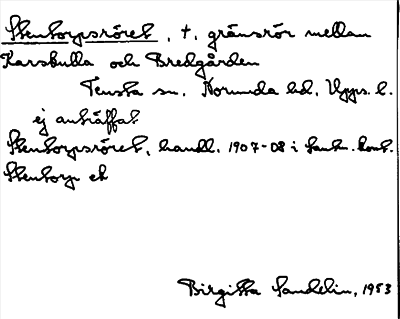 Stentorpsröret, †, gränsrör mellan
Karskulla och Bredgården
Tensta sn. Norunda hd. Upps. l.
ej anträffat
Stentorpsröret, handl. 1907-08 i Lantm. kont.
Stentorp ek
Birgitta Sandelin, 1953